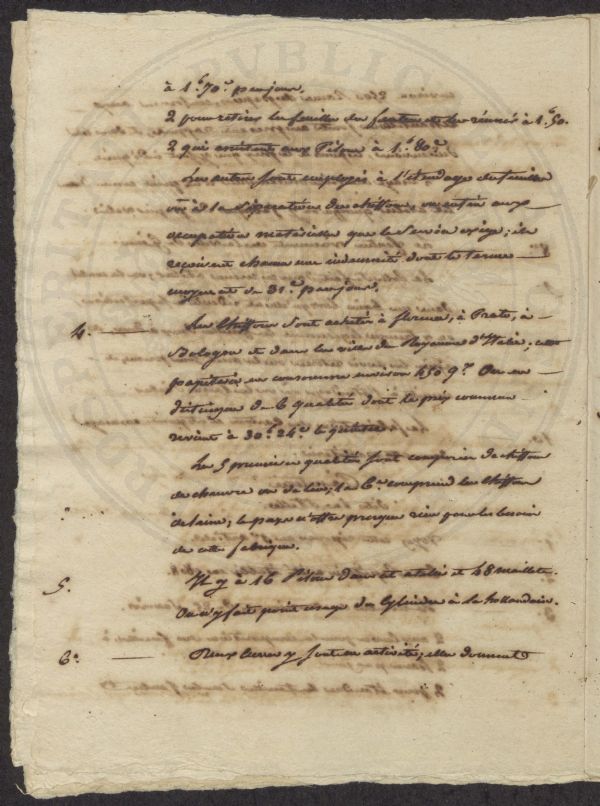 à 1f 70c par jour.
2 pour retirer les feuilles des feutres et les réunir à 1f 50.
2 qui assistent aux Piles à 1f 80c
Les autres sont employés à l'étendage des feuilles
ou à la séparation des chiffons, ou enfin aux
occupations matérielles que le Service exige; ils
reçoivent chacun une indemnité dont le terme
moyen est de 31c par jour.
4. Les Chiffons sont achetés à florence, à Prato, à
Bologne et dans les villes du Royaume d'Italie; cette
papeterie en consomme environ 450 qx On en
distingue de 6 qualités dont le prix commun
revient à 30f 24c le quintal
Les 5 premières qualités sont composées de chiffons
de chanvre ou de lin; la 6e comprend les Chiffons
de laine; le pays n'offre presque rien pour les besoins
de cette fabrique.
5. Il y a 16 Piles dans cet atelier et 48 maillets.
On n'y fait point usage des Cylindres à la hollandaise.
6e Deux Cuves y sont en activité; elles donnent